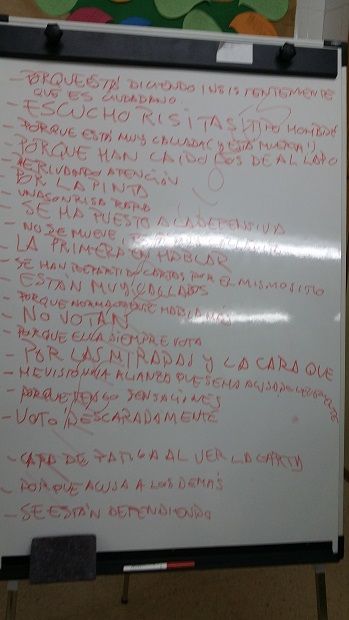 - PORQUE ESTÁ DICIENDO INSISTENTEMENTE
QUE ES CIUDADANO
- ESCUCHO RISITAS (TIPO HOMBRE
- PORQUE ESTÁ MUY CALLADAS (y ESTÁ MUERTA!)
- PORQUE HAN CAÍDO DOS DE AL LADO
- PIDIENDO ATENCIÓN
- POR LA PINTA
- UNA SONRISA RARA
- SE HA PUESTO A LA DEFENSIVA
- NO SE MUEVE
- LA PRIMERA EN HABLAR
- SE HAN REPARTIDO CARTAS POR EL MISMO SITIO
- ESTÁN MUY CALLADOS
- PORQUE NORMALMENTE HABLA MÁS
- NO VOTAN
- PORQUE ELLA SIEMPRE VOTA
- POR LAS MIRADAS Y LA CARA QUE
- HE VISTO UNA ALIANZA QUE SE HA
- PORQUE TENGO SENSACIONES
- VOTÓ DESCARADAMENTE
- CARA DE FATIGA AL VER LA CARTA
- PORQUE ACUSA A LOS DEMÁS
- SE ESTÁN DEFENDIENDO